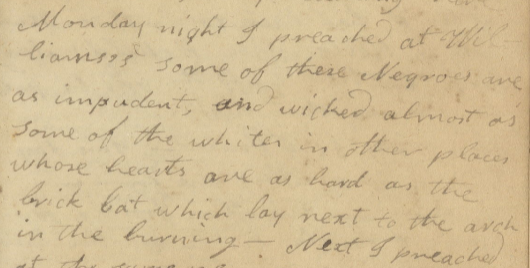 Monday night I preached at Wil-
liamses some of these Negroes are
as impudent, and wicked almost as
some of the whites in other places
whose hearts are as hard as the
brick bat which lay next to the arch
in the burning — Next I preached
at the same